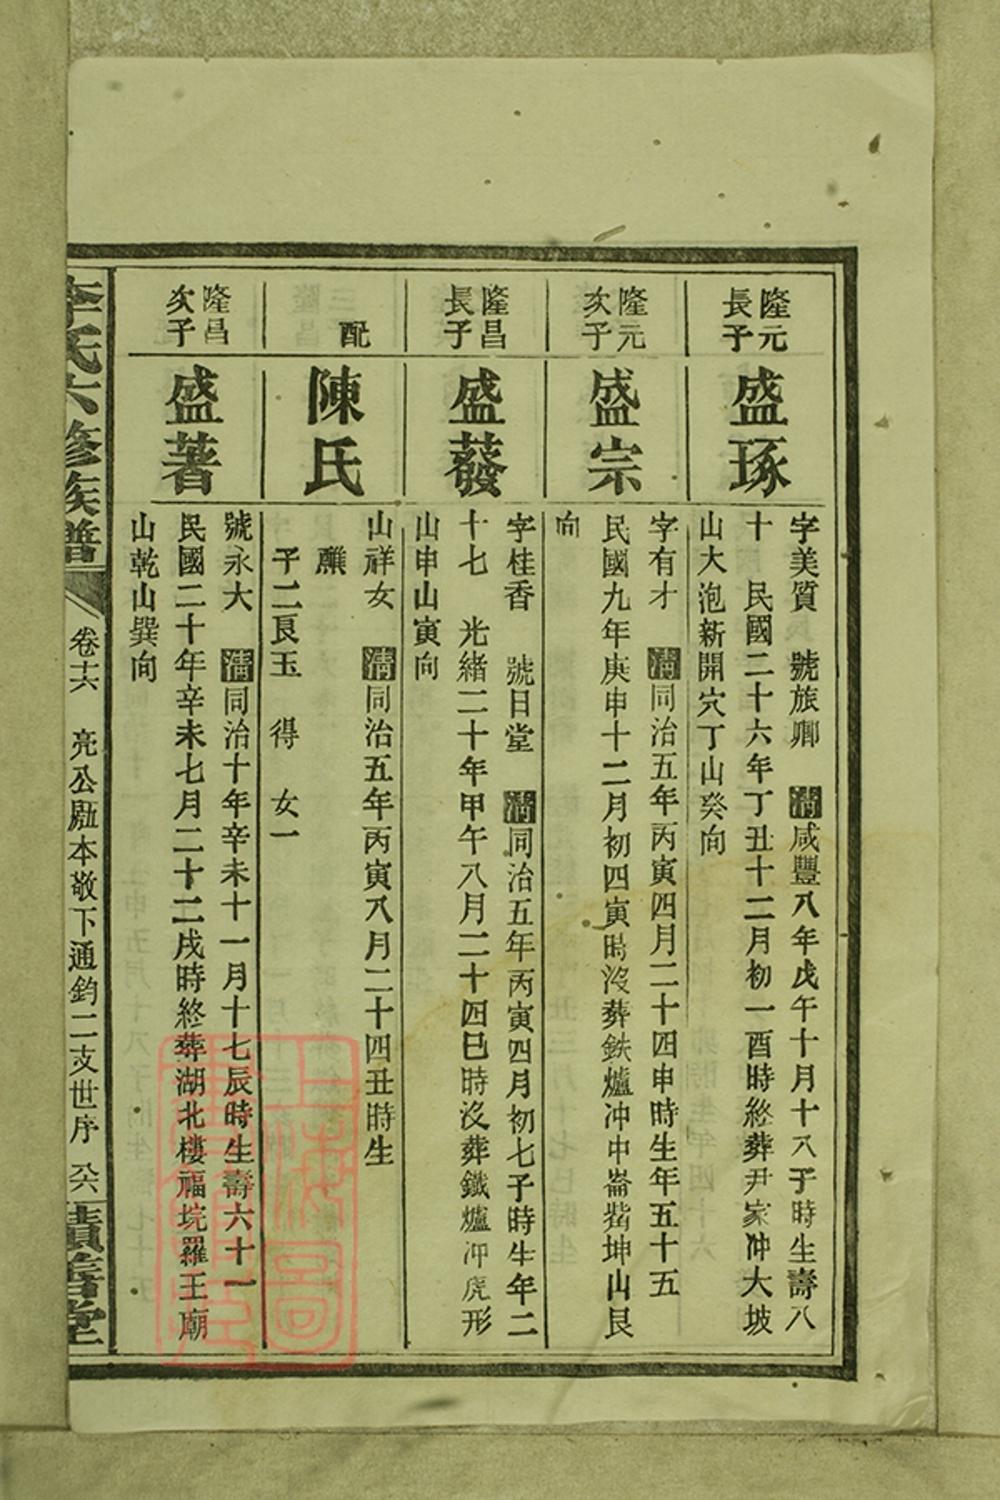 隆元
長子
盛琢
字美質　號旅卿　清咸豐八年戊午十月十八子時生壽八
十　民國二十六年丁丑十二月初一酉時終葬尹家冲大坡
山大泡新開穴丁山癸向
隆元
次子
盛宗
字有才　清同治五年丙寅四月二十四申時生年五十五
民國九年庚申十二月初四寅時沒葬鉄爐冲中崙嘴坤山艮
向
隆昌
長子
盛蕟
字桂香　號日堂　清同治五年丙寅四月初七子時生年二
十七　光緒二十年甲午八月二十四巳時沒葬鐵爐冲虎形
山申山寅向
配
陳氏
山祥女　清同治五年丙寅八月二十四丑時生
醮
子二良玉　得　女一
隆昌
次子
盛著
號永大　清同治十年辛未十一月十七辰時生壽六十一
民國二十年辛未七月二十二戌時終葬湖北樓福垸羅王廟
山乾山巽向
李氏六修族譜
卷十六　亮公房本敬下通鈞二支世序　六六
積善堂
上海圖
書館藏